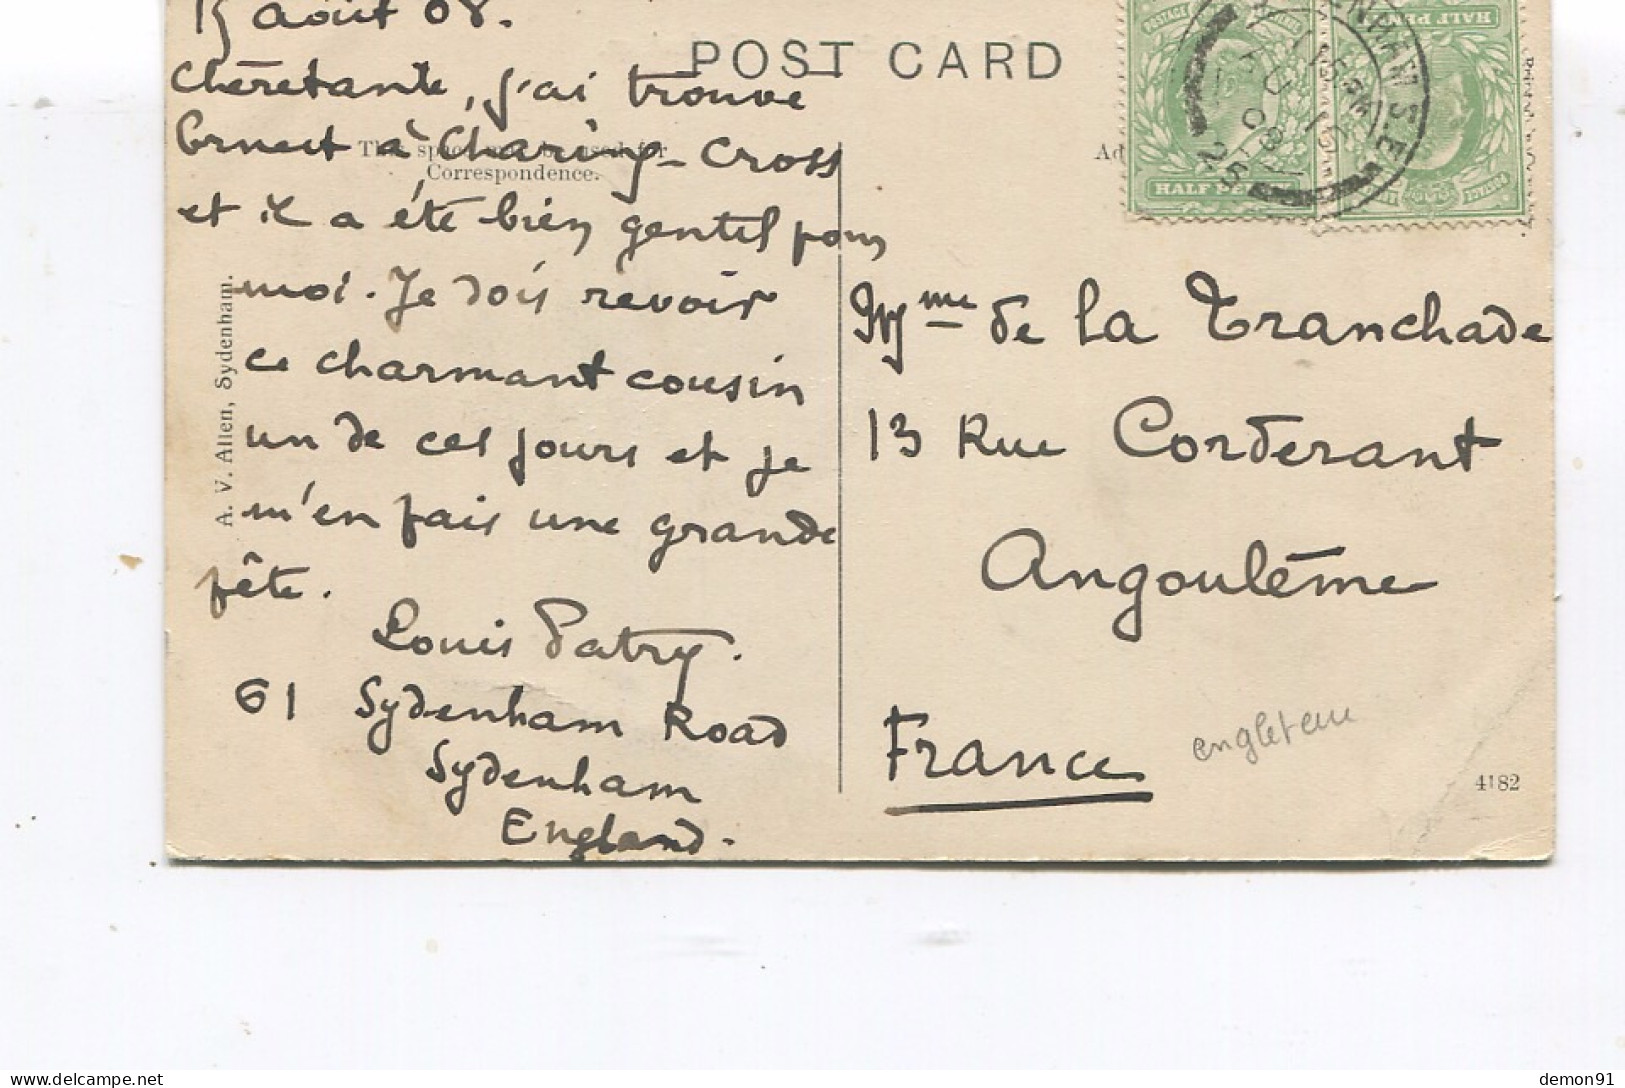 15 août 08.
POST CARD
Chère tante, j'ai trouvé
Ernest à Charing-Cross
This space may be used for
Correspondence.
et il a été bien gentil pour
moi. Je dois revoir
ce charmant cousin
un de ces jours et je
m'en fais une grande
fête.
Louis Patry.
61 Sydenham Road
Sydenham
England.
A. V. Allen, Sydenham.
Ad
Mme de la Tranchade
13 Rue Corderant
Angoulême
France
engleterre
4182
POSTAGE
HALF PENNY
HALF PEN
SYDENHAM S.E.
7.15 PM
AU 15
08
25
demon91